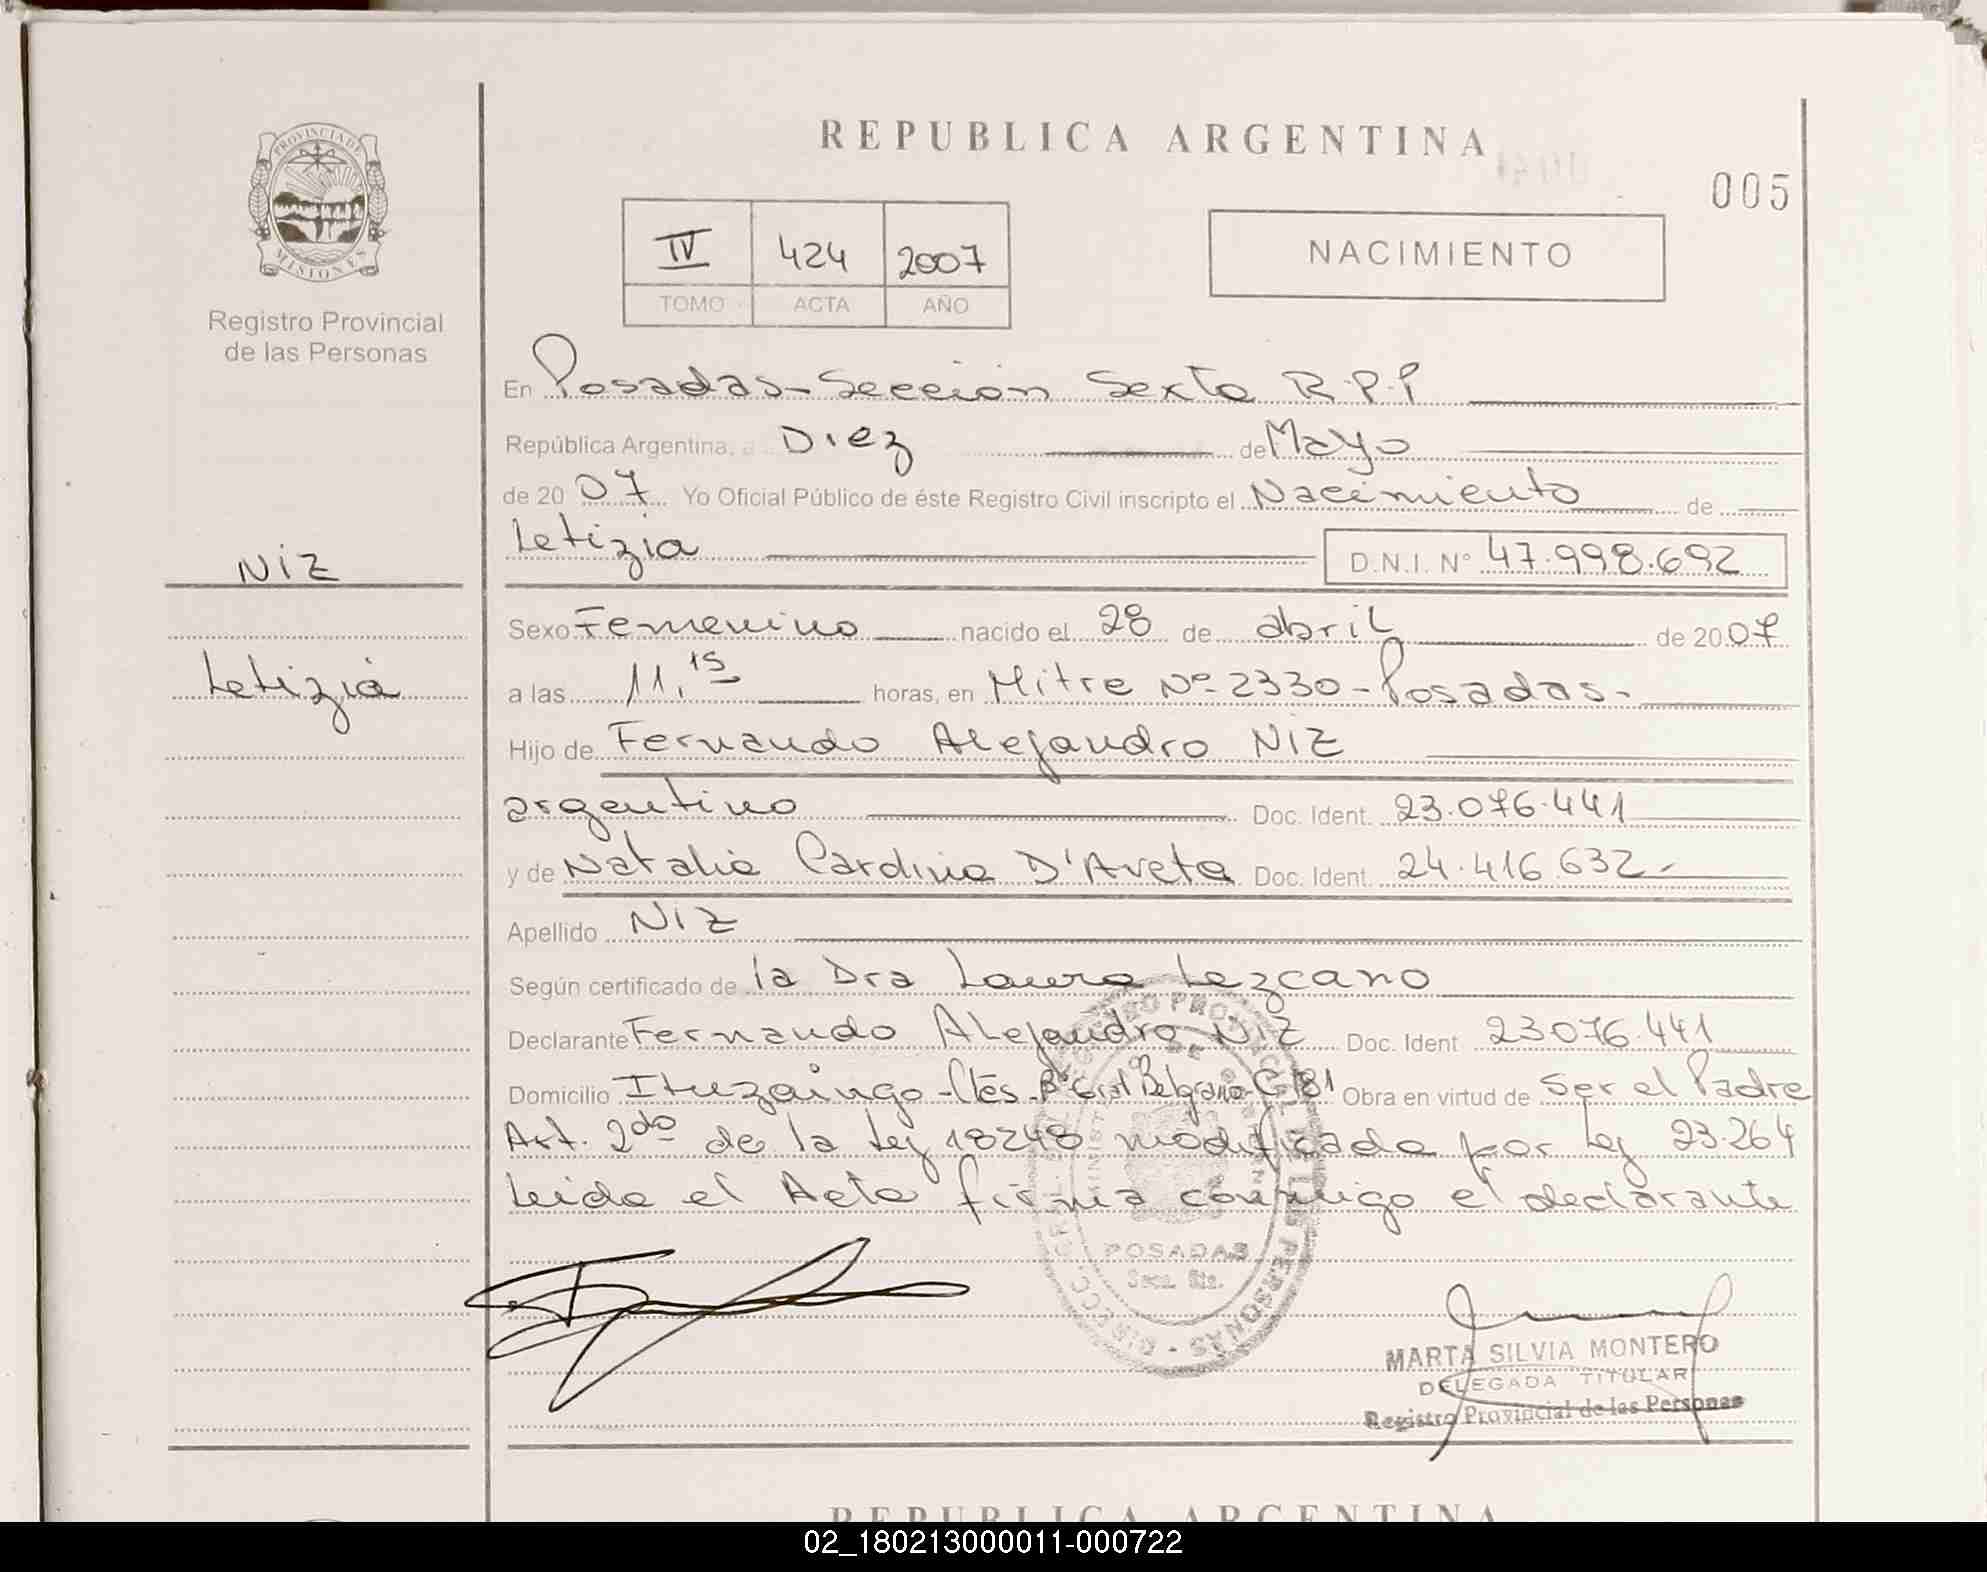 REPUBLICA ARGENTINA
005
PROVINCIA DE
MISIONES
Registro Provincial
de las Personas
IV 424 2007
TOMO ACTA AÑO
NACIMIENTO
En Posadas - Sección Sexta R.P.P
República Argentina, a Diez de Mayo
de 20 07 Yo Oficial Público de éste Registro Civil inscripto el Nacimiento de
Letizia D.N.I. Nº 47.998.692
NIZ
Letizia
Sexo Femenino nacido el 28 de abril de 2007
a las 11,15 horas, en Mitre Nº 2330 - Posadas -
Hijo de Fernando Alejandro NIZ
argentino Doc. Ident. 23.076.441
y de Natalia Cardina D'Aveta Doc. Ident. 24.416.632.-
Apellido NIZ
Según certificado de la Dra Laura Lezcano
Declarante Fernando Alejandro NIZ Doc. Ident 23076.441
Domicilio Ituzaingo - Ctes. Bº Gral Belgrano C 181 Obra en virtud de Ser el Padre
Art. 2do de la Ley 18248 modificada por Ley 23.264
Leida el Acta firma conmigo el declarante
POSADAS
Secc. 6ta.
MARTA SILVIA MONTERO
DELEGADA TITULAR
Registro Provincial de las Personas
REPUBLICA ARGENTINA
02_180213000011-000722